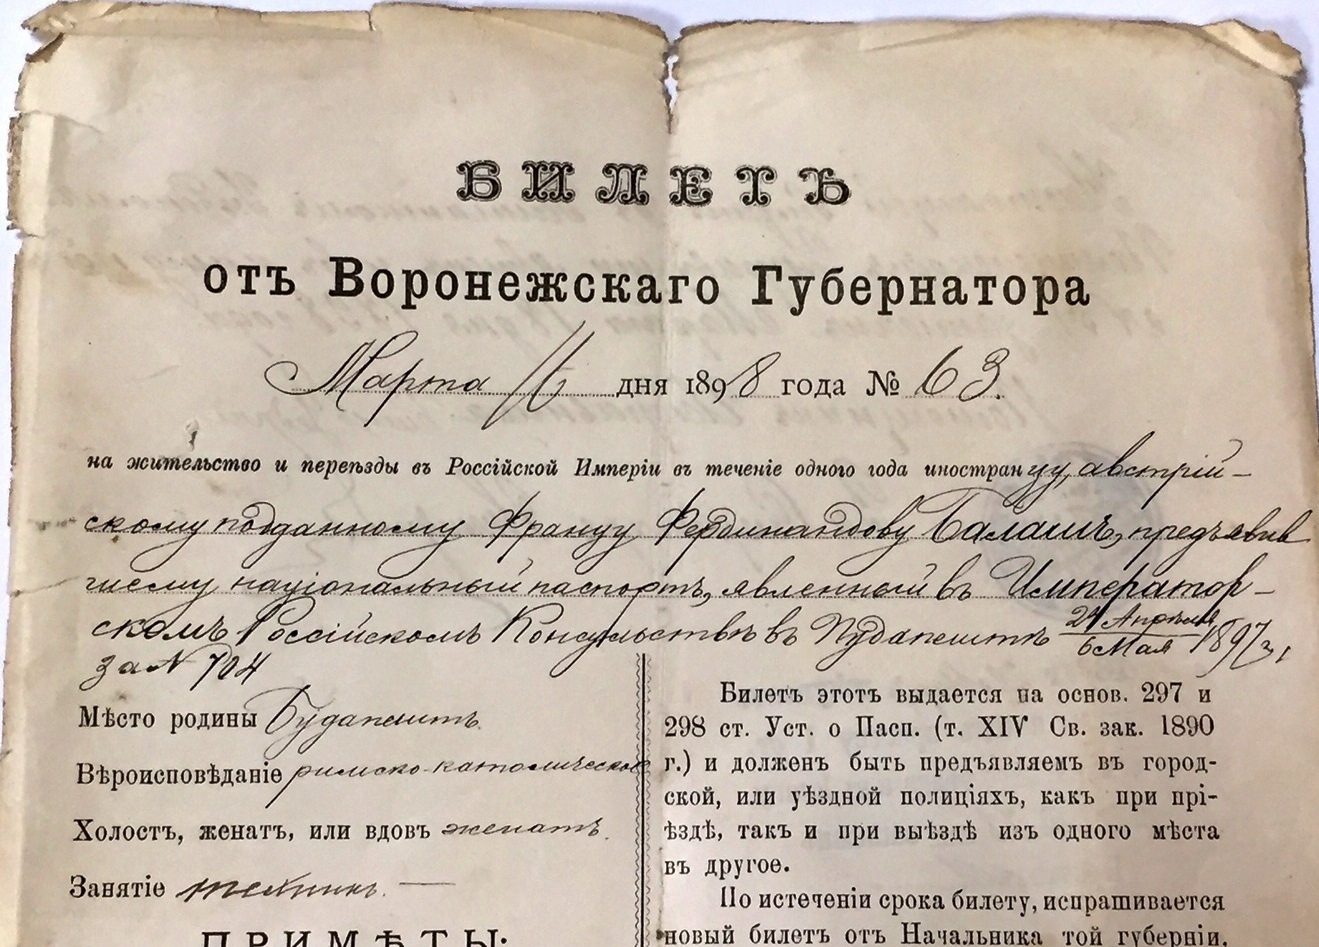 БИЛЕТЪ
отъ Воронежскаго Губернатора
Марта 16 дня 1898 года № 63.
на жительство и переѣзды въ Россійской Имперіи въ теченіе одного года иностранцу, австрій-
скому подданному Францу Фердинандову Балашъ, предъявив
шему національный паспортъ, явленный въ Император-
скомъ Россійскомъ Консульствѣ въ Будапештѣ 24 Апрѣля/6 Мая 1897 г.
за N 704
Мѣсто родины Будапештъ
Вѣроисповѣданіе римско-католическое
Холостъ, женатъ, или вдовъ женатъ.
Занятіе техникъ. —
ПРИМѢТЫ:
Билетъ этотъ выдается на основ. 297 и
298 ст. Уст. о Пасп. (т. XIV Св. зак. 1890
г.) и долженъ быть предъявляемъ въ город-
ской, или уѣздной полиціяхъ, какъ при прі-
ѣздѣ, такъ и при выѣздѣ изъ одного мѣста
въ другое.
По истеченіи срока билету, испрашивается
новый билетъ отъ Начальника той губерніи,